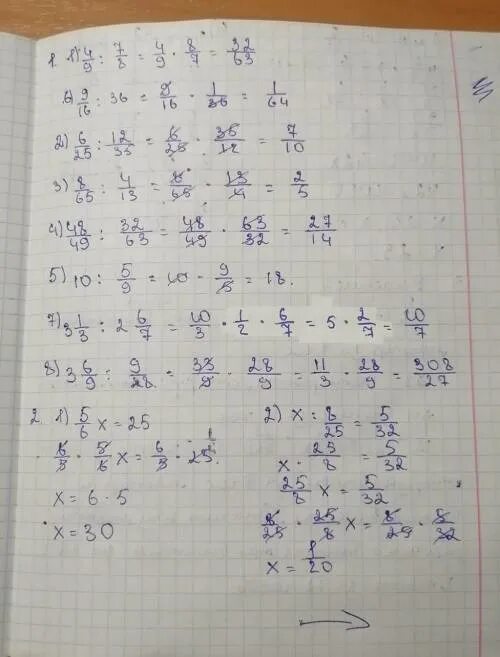 1. 1) 4/9 : 7/8 = 4/9 · 8/7 = 32/63
6) 9/16 : 36 = 9/16 · 1/36 = 1/64
2) 6/25 : 12/35 = 6/25 · 35/12 = 7/10
3) 8/65 : 4/13 = 8/65 · 13/4 = 2/5
4) 48/49 : 32/63 = 48/49 · 63/32 = 27/14
5) 10 : 5/9 = 10 · 9/5 = 18.
7) 3 1/3 : 2 6/7 = 10/3 · 1/2 · 6/7 = 5 · 2/7 = 10/7
8) 3 6/9 : 9/28 = 33/9 · 28/9 = 11/3 · 28/9 = 308/27
2. 1) 5/6 x = 25
6/5 · 5/6 x = 6/5 · 25
x = 6 · 5
x = 30
2) x : 8/25 = 5/32
x · 25/8 = 5/32
25/8 x = 5/32
8/25 · 25/8 x = 8/25 · 5/32
x = 1/20